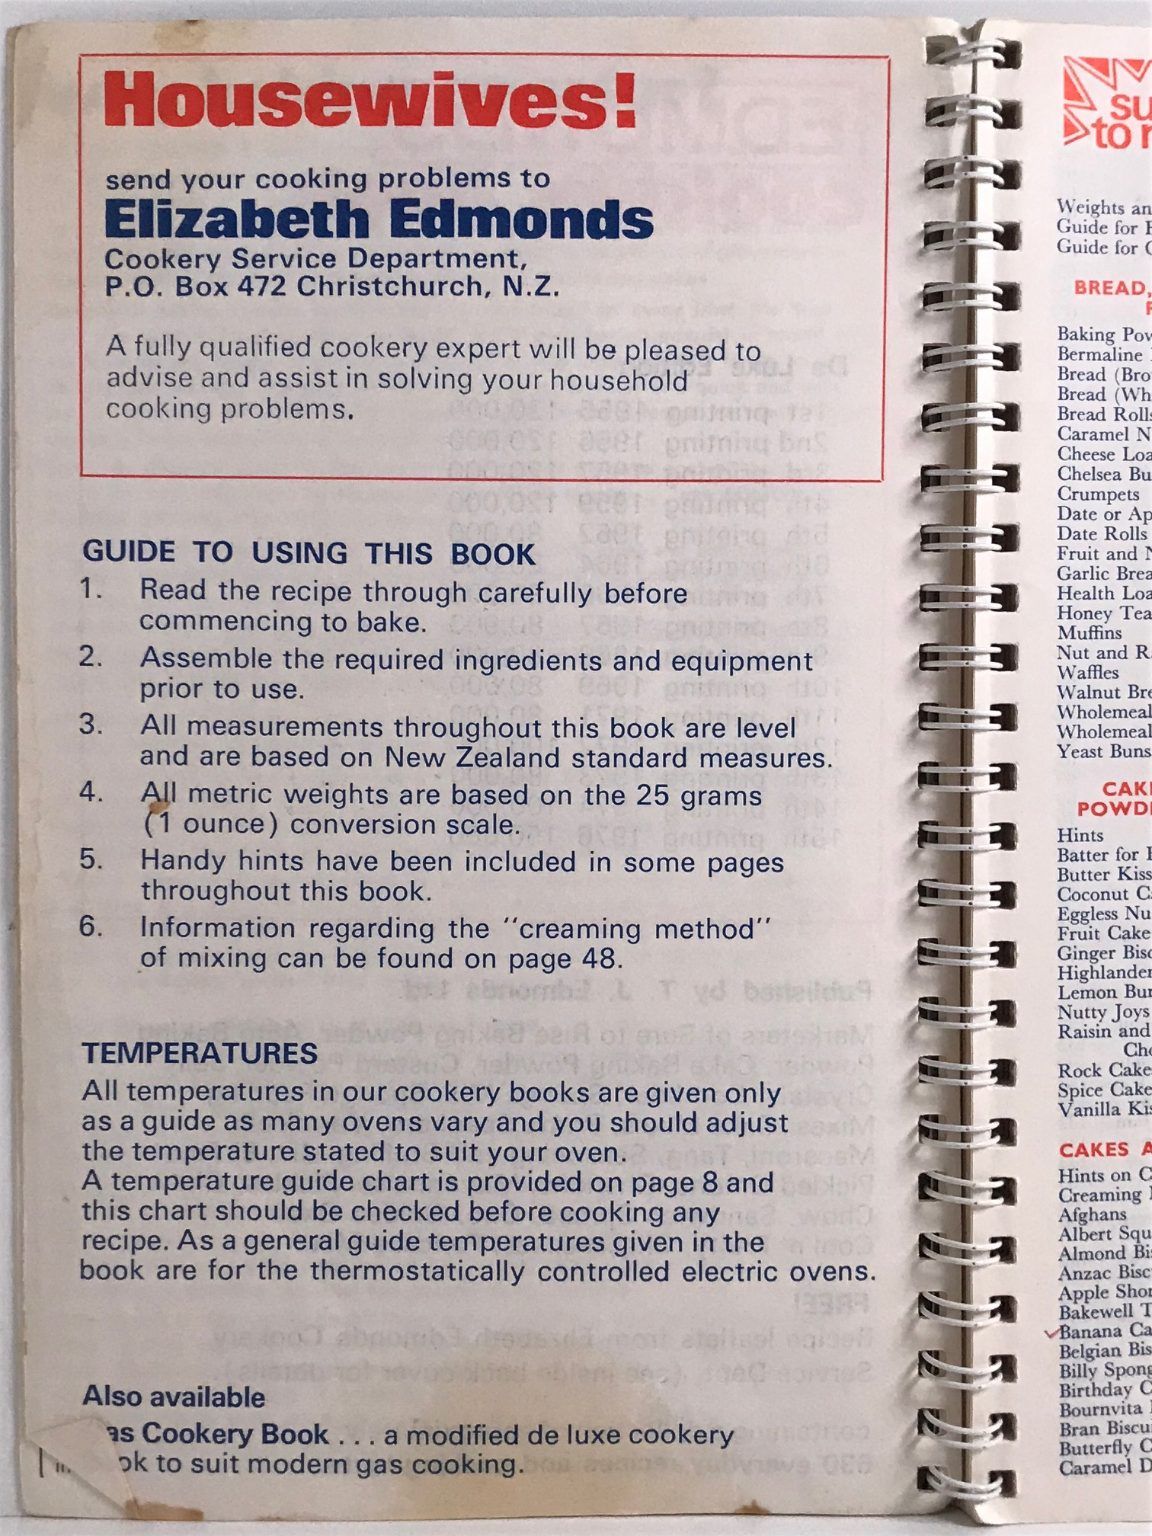 Housewives!
send your cooking problems to
Elizabeth Edmonds
Cookery Service Department,
P.O. Box 472 Christchurch, N.Z.
A fully qualified cookery expert will be pleased to
advise and assist in solving your household
cooking problems.
GUIDE TO USING THIS BOOK
1. Read the recipe through carefully before
commencing to bake.
2. Assemble the required ingredients and equipment
prior to use.
3. All measurements throughout this book are level
and are based on New Zealand standard measures.
4. All metric weights are based on the 25 grams
(1 ounce) conversion scale.
5. Handy hints have been included in some pages
throughout this book.
6. Information regarding the "creaming method"
of mixing can be found on page 48.
TEMPERATURES
All temperatures in our cookery books are given only
as a guide as many ovens vary and you should adjust
the temperature stated to suit your oven.
A temperature guide chart is provided on page 8 and
this chart should be checked before cooking any
recipe. As a general guide temperatures given in the
book are for the thermostatically controlled electric ovens.
Also available
as Cookery Book . . . a modified de luxe cookery
ok to suit modern gas cooking.
su
to r
Weights an
Guide for
Guide for
BREAD,
Baking Pov
Bermaline
Bread (Bro
Bread (Wh
Bread Rolls
Caramel N
Cheese Loa
Chelsea Bu
Crumpets
Date or Ap
Date Rolls
Fruit and N
Garlic Brea
Health Loa
Honey Tea
Muffins
Nut and R
Waffles
Walnut Bre
Wholemeal
Wholemeal
Yeast Buns
CAK
POWDE
Hints
Batter for
Butter Kiss
Coconut C
Eggless Nu
Fruit Cake
Ginger Bisc
Highlander
Lemon Bur
Nutty Joys
Raisin and
Ch
Rock Cake
Spice Cake
Vanilla Kis
CAKES A
Hints on C
Creaming
Afghans
Albert Squ
Almond Bis
Anzac Bisc
Apple Shor
Bakewell T
Banana Ca
Belgian Bis
Billy Spong
Birthday C
Bournvita
Bran Biscu
Butterfly C
Caramel D